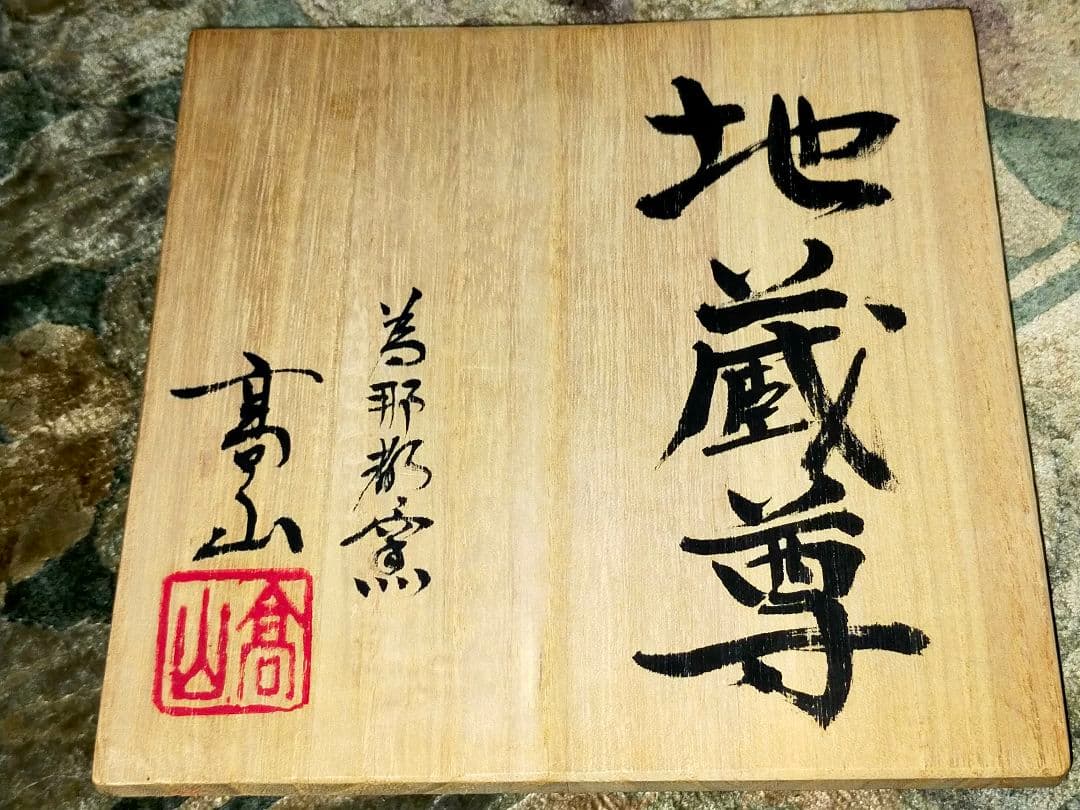 地蔵尊
為那都窯
高山
高山